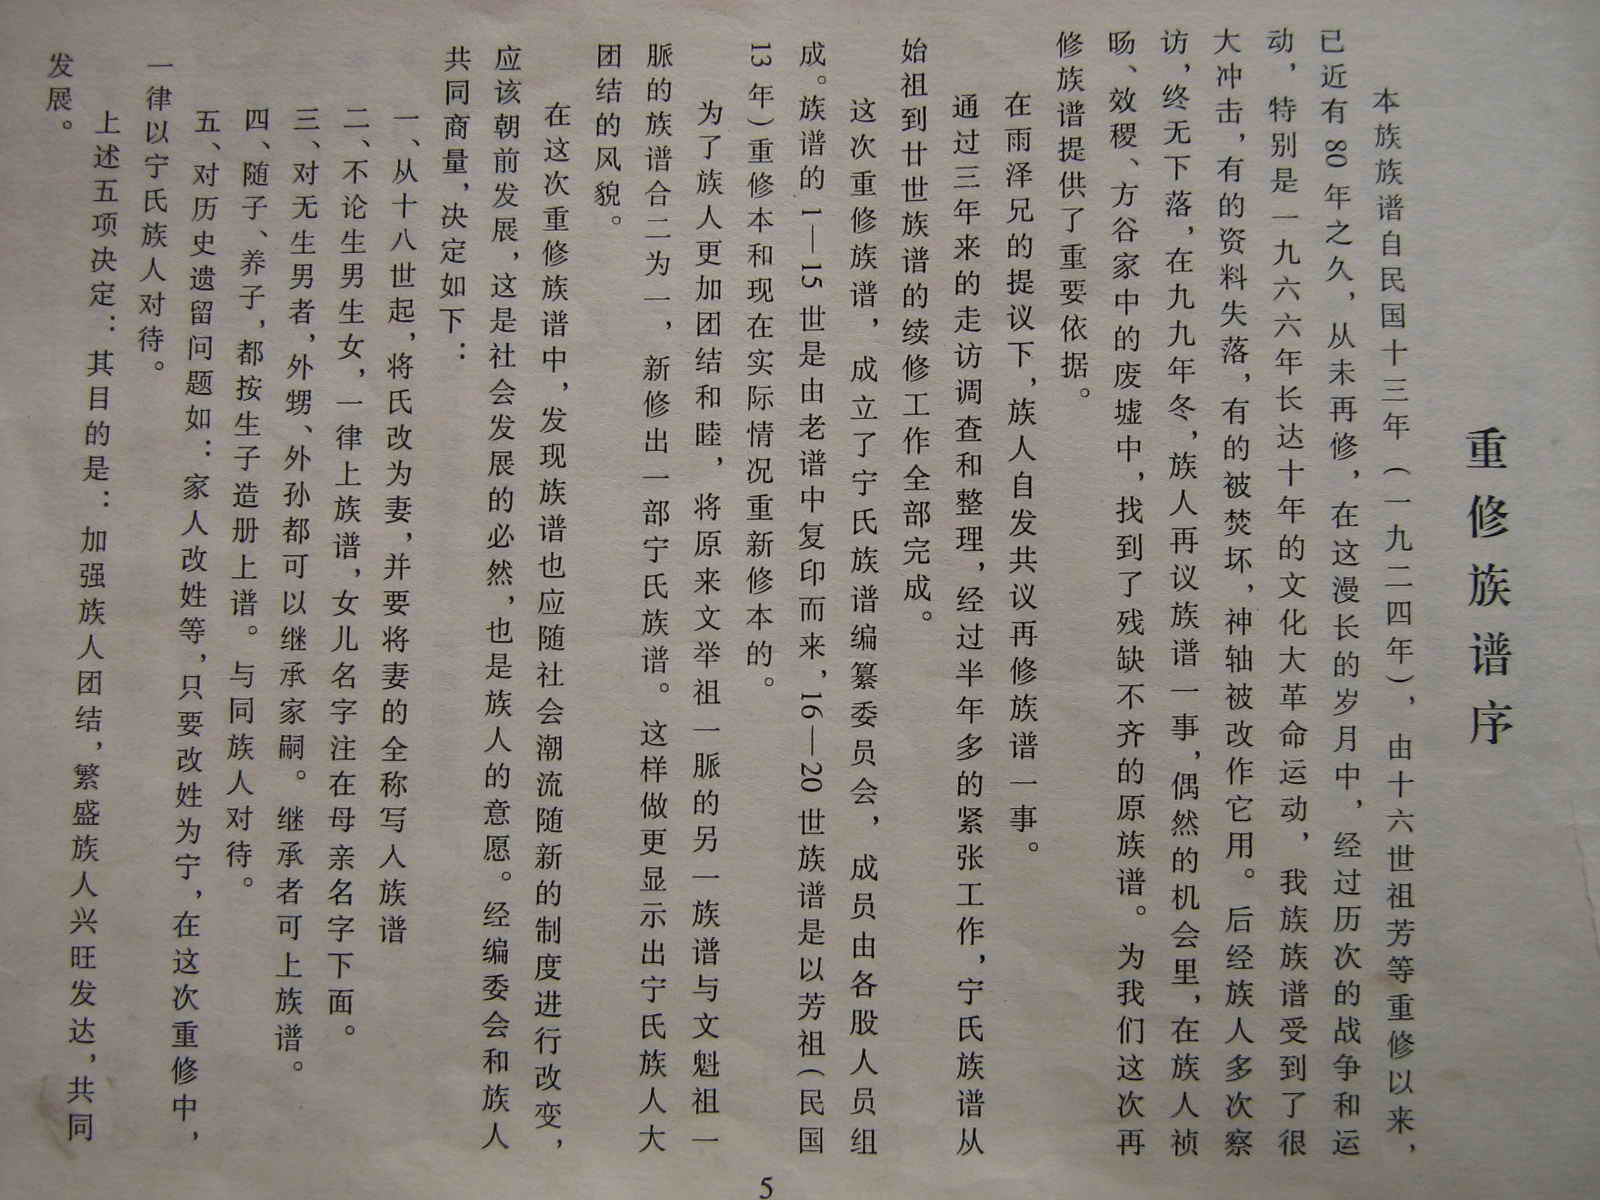 重修族谱序
本族族谱自民国十三年(一九二四年)，由十六世祖芳等重修以来，
已近有80年之久，从未再修，在这漫长的岁月中，经过历次的战争和运
动，特别是一九六六年长达十年的文化大革命运动，我族族谱受到了很
大冲击，有的资料失落，有的被焚坏，神轴被改作它用。后经族人多次察
访，终无下落，在九九年冬，族人再议族谱一事，偶然的机会里，在族人祯
旸、效稷、方谷家中的废墟中，找到了残缺不齐的原族谱。为我们这次再
修族谱提供了重要依据。
在雨泽兄的提议下，族人自发共议再修族谱一事。
通过三年来的走访调查和整理，经过半年多的紧张工作，宁氏族谱从
始祖到廿世族谱的续修工作全部完成。
这次重修族谱，成立了宁氏族谱编纂委员会，成员由各股人员组
成。族谱的1—15世是由老谱中复印而来，16—20世族谱是以芳祖(民国
13年)重修本和现在实际情况重新修本的。
为了族人更加团结和睦，将原来文举祖一脉的另一族谱与文魁祖一
脉的族谱合二为一，新修出一部宁氏族谱。这样做更显示出宁氏族人大
团结的风貌。
在这次重修族谱中，发现族谱也应随社会潮流随新的制度进行改变，
应该朝前发展，这是社会发展的必然，也是族人的意愿。经编委会和族人
共同商量，决定如下：
一、从十八世起，将氏改为妻，并要将妻的全称写入族谱
二、不论生男生女，一律上族谱，女儿名字注在母亲名字下面。
三、对无生男者，外甥、外孙都可以继承家嗣。继承者可上族谱。
四、随子、养子，都按生子造册上谱。与同族人对待。
五、对历史遗留问题如：家人改姓等，只要改姓为宁，在这次重修中，
一律以宁氏族人对待。
上述五项决定：其目的是：加强族人团结，繁盛族人兴旺发达，共同
发展。
5